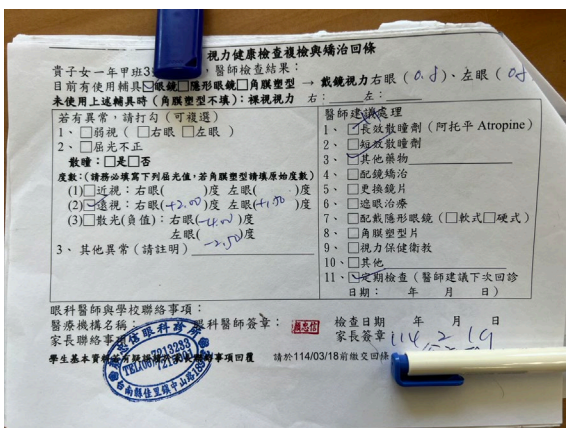 視力健康檢查複檢與矯治回條
貴子女一年甲班3 ，醫師檢查結果：
目前有使用輔具☑眼鏡□隱形眼鏡□角膜塑型 → 戴鏡視力右眼(0.8)、左眼(0.8
未使用上述輔具時(角膜塑型不填)：裸視視力 右：＿＿左：＿＿
若有異常，請打勾(可複選)
1、□弱視(□右眼□左眼)
2、□屈光不正
散瞳：□是□否
度數：(請務必填寫下列屈光值，若角膜塑型請填原始度數)
(1)□近視：右眼( )度 左眼( )度
(2)☑遠視：右眼(+2.00)度 左眼(+1.50)度
(3)□散光(負值)：右眼(-4.00)度
左眼( -2.50 )度
3、其他異常(請註明)
醫師建議處理
1、□長效散瞳劑(阿托平 Atropine)
2、□短效散瞳劑
3、□其他藥物
4、□配鏡矯治
5、□更換鏡片
6、□遮眼治療
7、□配戴隱形眼鏡(□軟式□硬式)
8、□角膜塑型片
9、□視力保健衛教
10、□其他
11、☑定期檢查(醫師建議下次回診
日期： 年 月 日)
眼科醫師與學校聯絡事項：
醫療機構名稱： 眼科醫師簽章： 檢查日期 年 月 日
家長聯絡事項 家長簽章 114 2 19
學生基本資料若有疑 事項回覆 請於114/03/18前繳交回條
信眼科診所
TEL(06)7213233
台南縣佳里鎮中山路